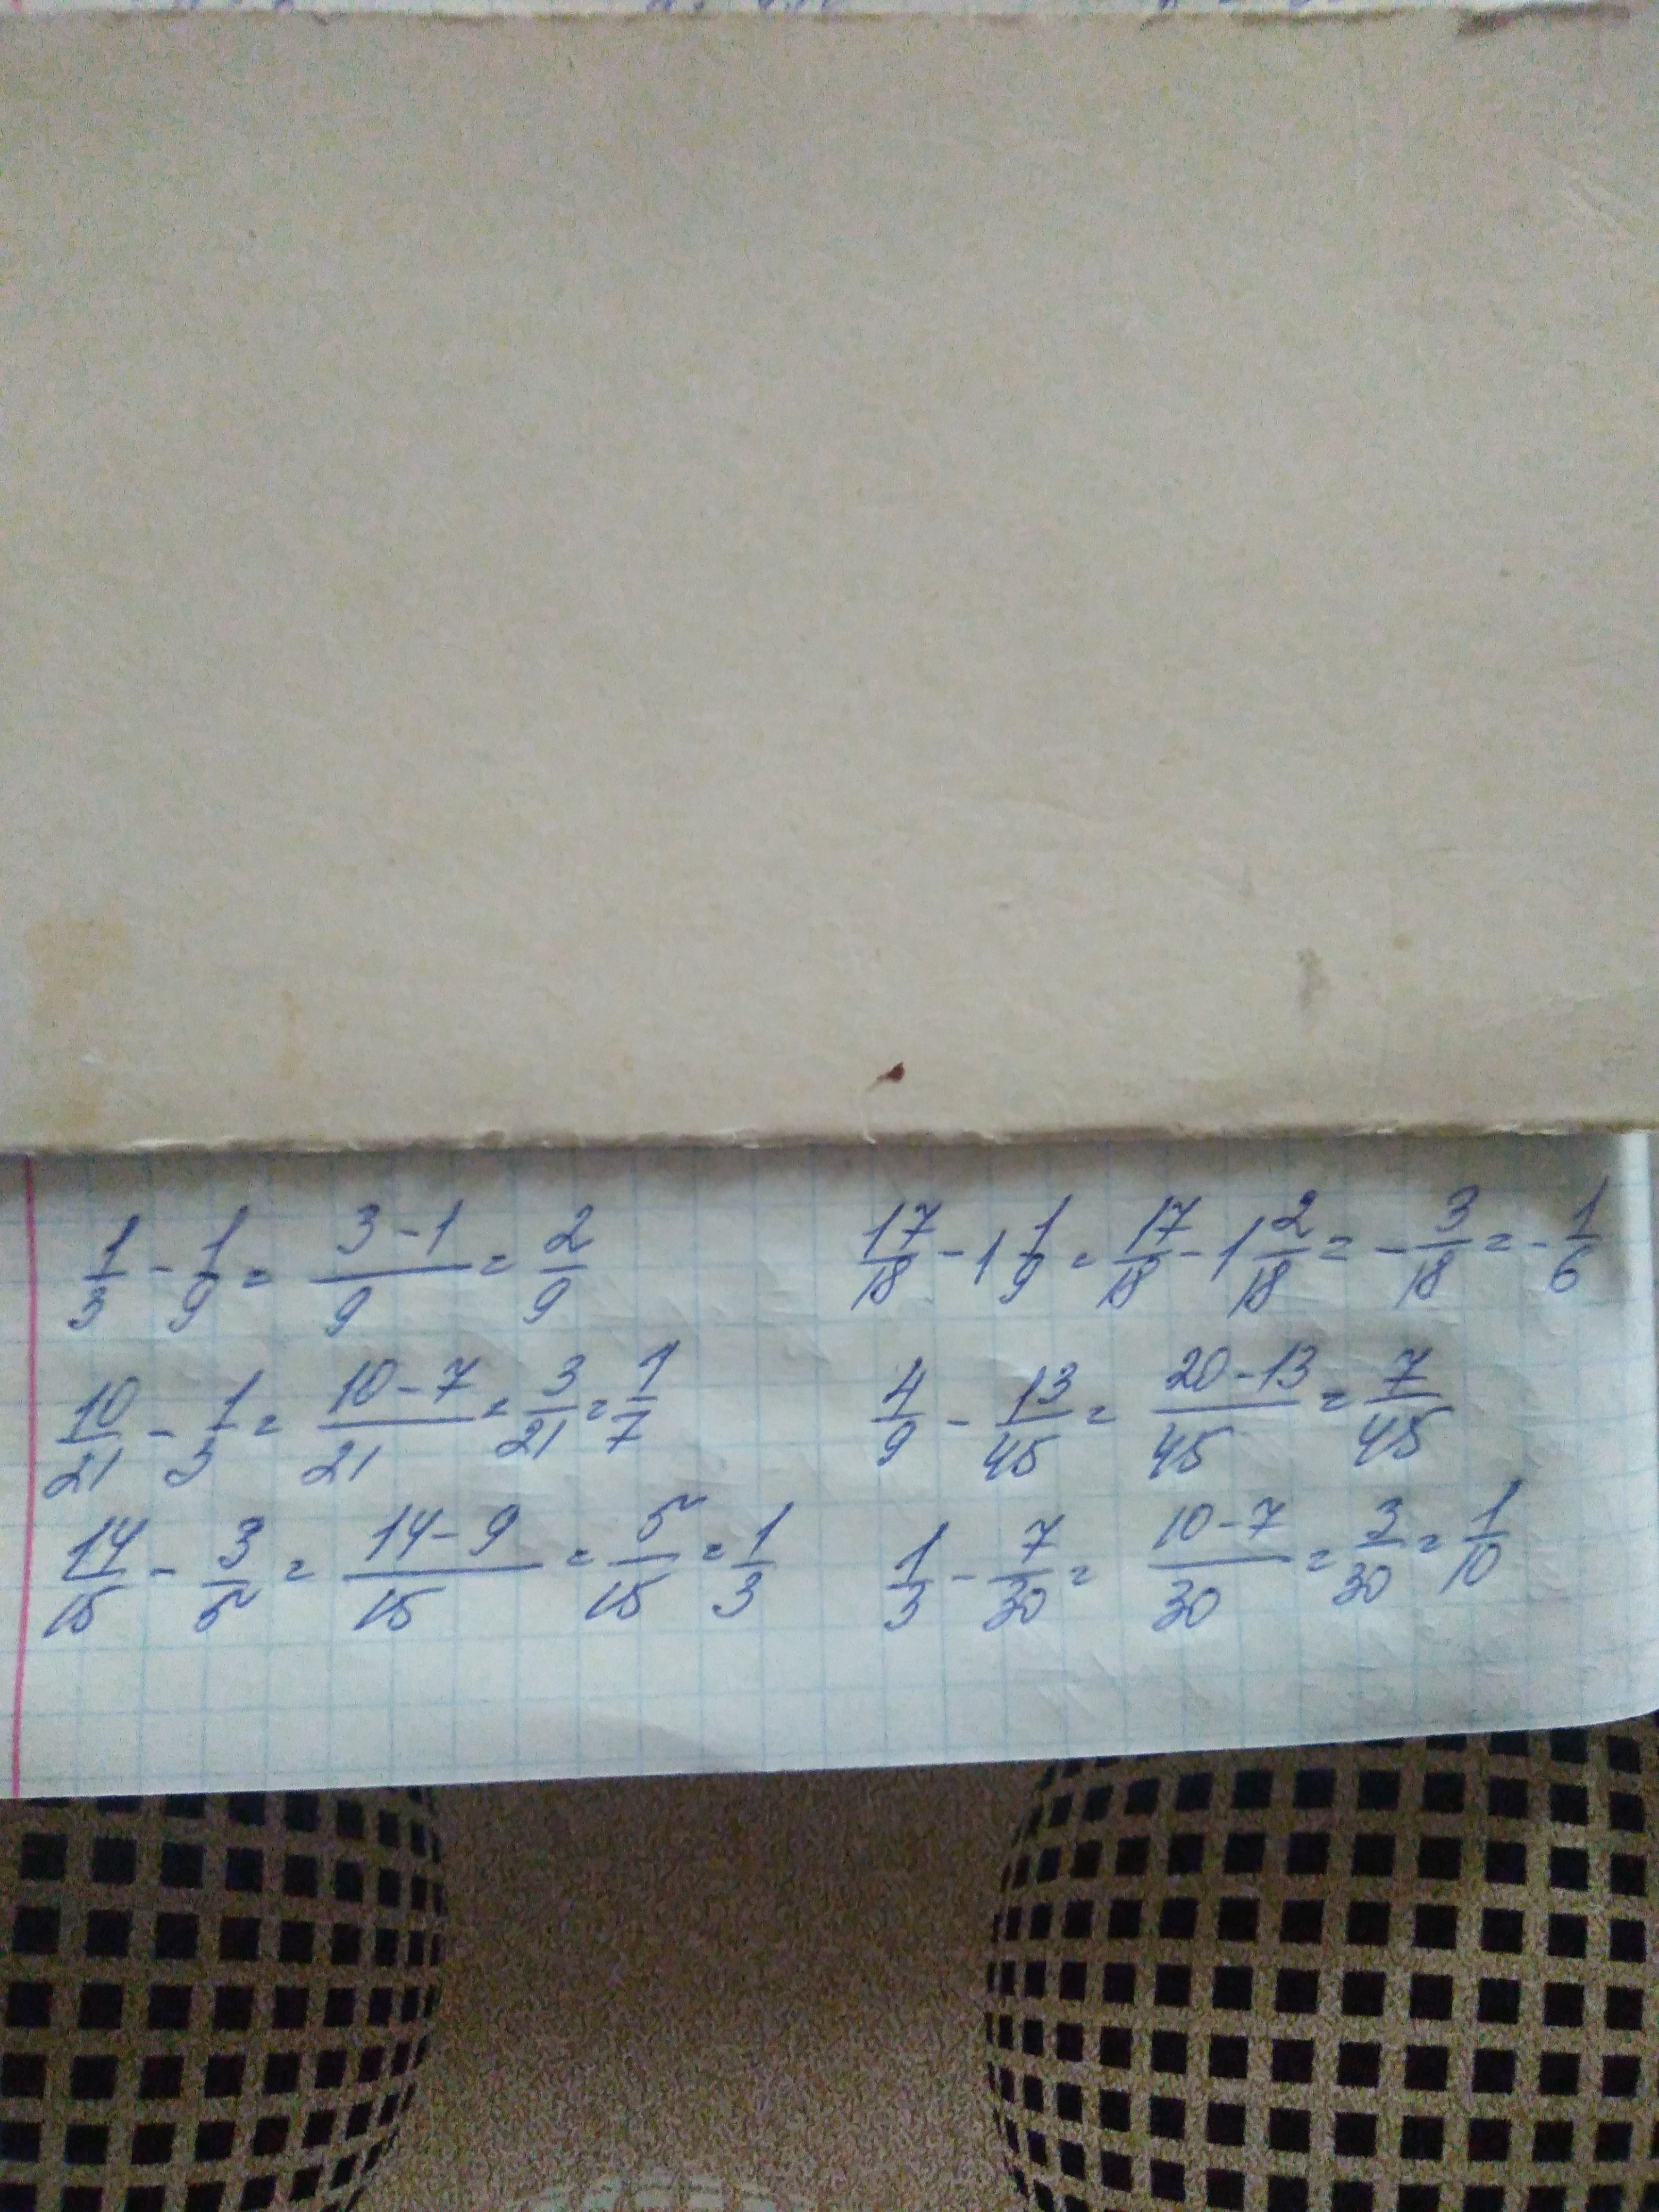 1/3 - 1/9 = (3-1)/9 = 2/9
10/21 - 1/3 = (10-7)/21 = 3/21 = 1/7
14/15 - 3/5 = (14-9)/15 = 5/15 = 1/3
17/18 - 1 1/9 = 17/18 - 1 2/18 = -3/18 = -1/6
4/9 - 13/45 = (20-13)/45 = 7/45
1/3 - 7/30 = (10-7)/30 = 3/30 = 1/10